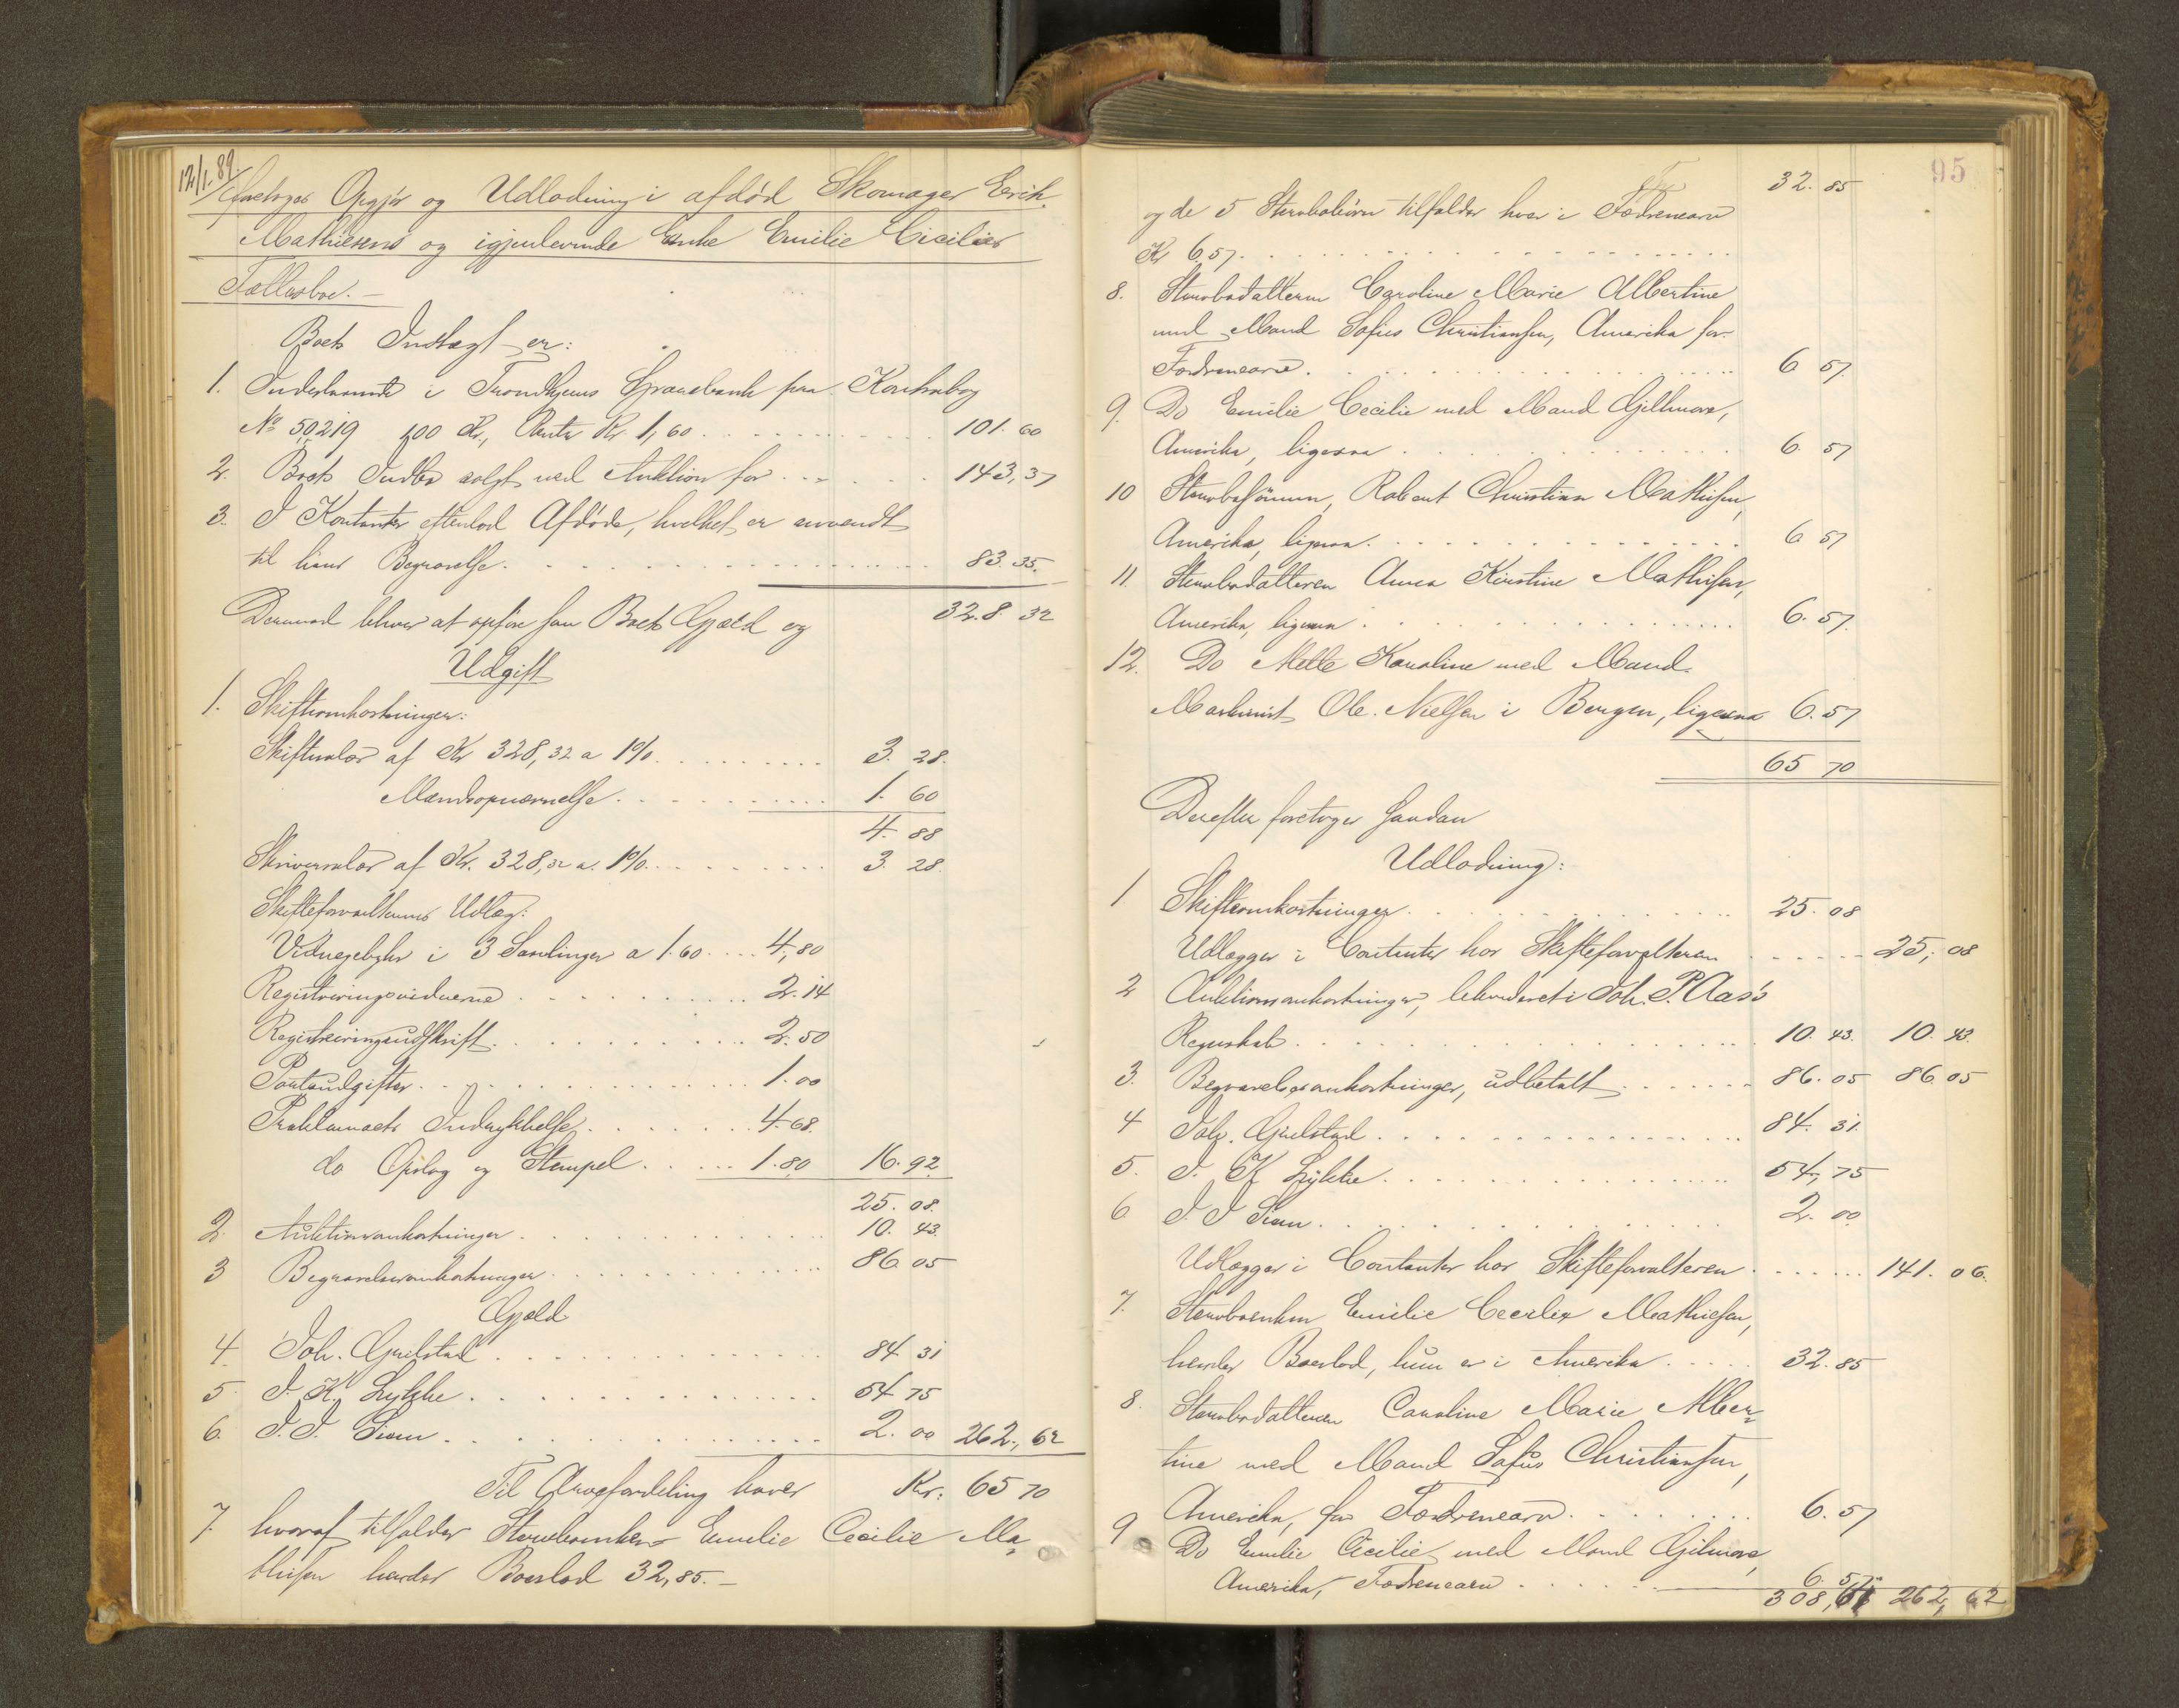 12/1.89.
foretoges Opgjör og Udlodning i afdød Skomager Erik
Mathiesens og igjenlevende Enke Emilie Cicilies
Fællesbo.—
Boets Indtægt er:
1. Indestaaende i Trondhjems Sparebank paa Kontrabog
No 50219 100 Kr., Renter Kr. 1,60 101.60
2. Boets Indbo solgt ved Auktion for 143,37
3. I Kontanter efterlod Afdøde, hvilket er anvendt
til hans Begravelse. 83.35.
328.32
Derimod bliver at opføre som Boets Gjæld og
Udgift
1. Skifteomkostninger:
Skiftesalær af Kr 328,32 a 1% 3.28.
Mændsopnævnelse. 1.60
4.88
Skriversalær af Kr. 328,32 a. 1% 3.28.
Skifteforvalterens Udlæg:
Vidnegebyhr i 3 Samlinger a 1.60 4,80
Registreringsvidnerne 2.14
Registreringsudskrift. 2.50
Postudgifter. 1.00
Proklamaets Indrykkelse 4.68.
do Opslag og Stempel 1.80 16.92
25.08.
2. Auktionsomkostninger 10.43.
3 Begravelsesomkostninger 86.05
Gjæld
4. Joh. Gjelstad 84 31
5 I. K. Lykke. 54 75
6. I. I. Siem 2.00 262,62
Til Arvefordeling haves Kr. 65 70
7. hvoraf tilfalder Stervboenken Emilie Cecilie Ma=
thisen hendes Boeslod 32,85.—
95
32.85
og de 5 Stervbobørn tilfalder hver i Fædrenearv
Kr 6.57.
8. Stervbodatteren Caroline Marie Albertine
med Mand Sofus Christiansen, Amerika for
Fædrenearv. 6 57.
9. Do Emilie Cecilie med Mand Gillmore,
Amerika, ligesaa 6.57
10 Stervbosönnen, Robert Christian Mathisen,
Amerika, ligesaa. 6 57
11. Stervbodatteren Anna Kirstine Mathisen,
Amerika, ligesaa 6.57.
12. Do Mette Karoline med Mand
Maskinist Ole Nielsen i Bergen, ligesaa 6.57
65 70
Derefter foretoges saadan
Udlodning:
1 Skifteomkostninger. 25.08
Udlægges i Contanter hos Skifteforvalteren 25,08
2 Auktionsomkostninger, likvideret i Joh. P. Aas's
Regnskab 10.43. 10.43.
3. Begravelsesomkostninger, udbetalt 86.05 86.05
4 Joh. Gjelstad 84.31.
5. I. K Lykke 54,75
6. I. I Siem 2.00
Udlægges i Contanter hos Skifteforvalteren 141.06.
7. Stervboenken Emilie Cecilie Mathiesen,
hendes Boeslod, hun er i Amerika 32.85
8. Stervbodatteren Caroline Marie Alber=
tine med Mand Sofus Christiansen,
Amerika, for Fædrenearv. 6.57
9 Do Emilie Cicilie med Mand Gilmore,
Amerika, Fædrenearv 6.57.
308,61 262,62